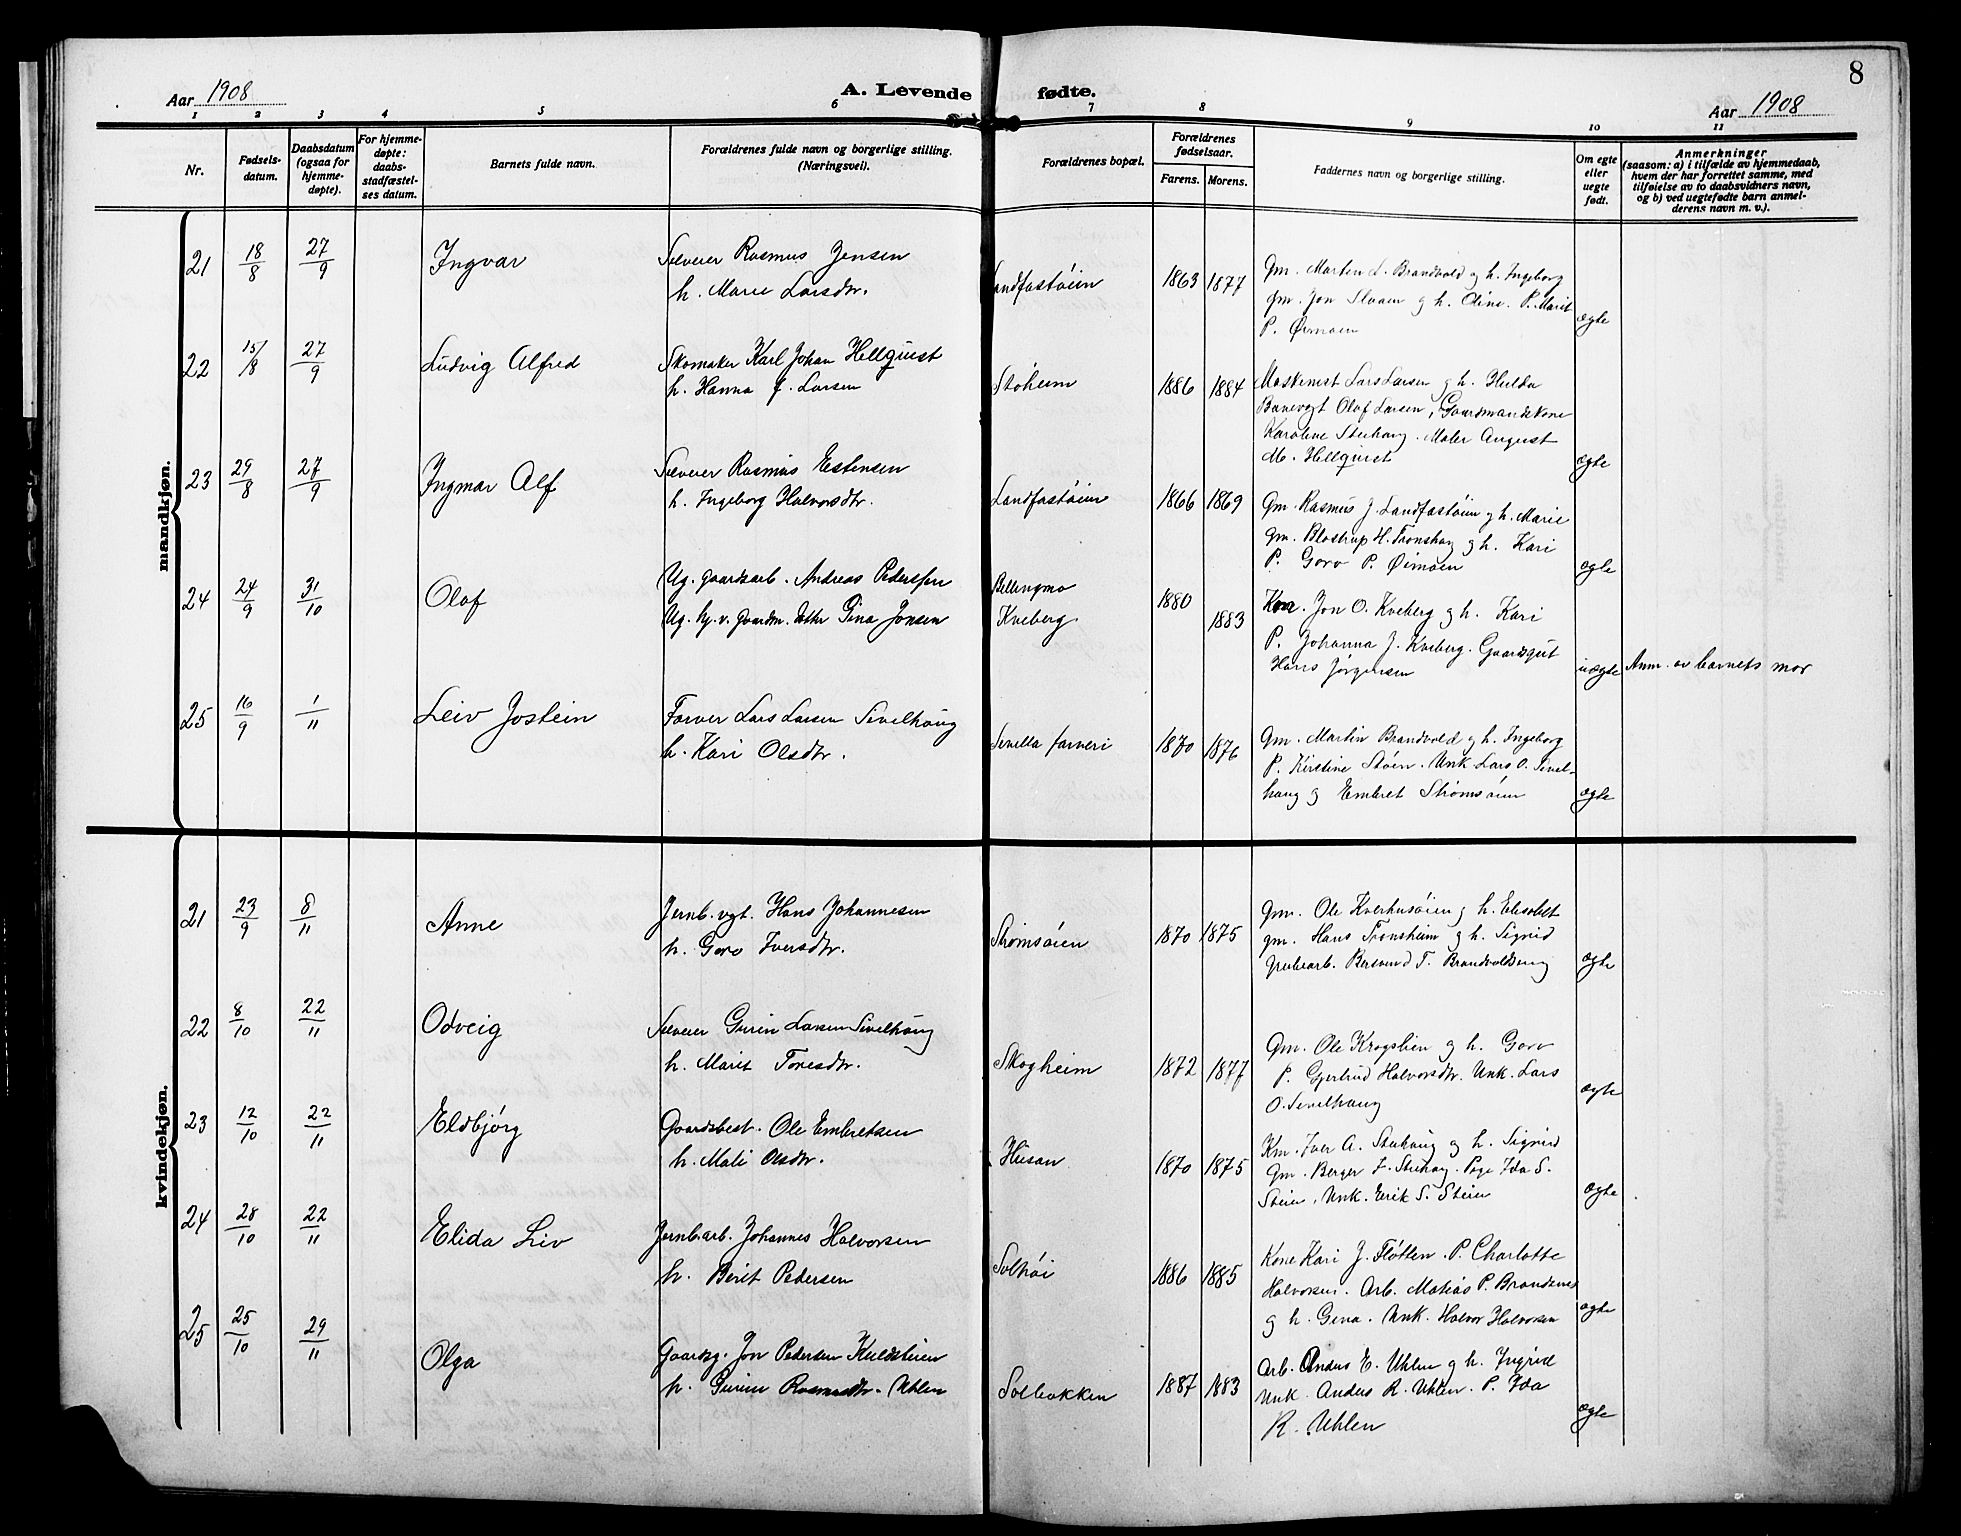 8
Aar 1908
A. Levende fødte.
Aar 1908
1 2 3 4 5 6 7 8 9 10 11
Nr.
Fødsels-
datum.
Daabsdatum
(ogsaa for
hjemme-
døpte).
For hjemme-
døpte:
daabs-
stadfæstel-
ses datum.
Barnets fulde navn.
Forældrenes fulde navn og borgerlige stilling.
(Næringsvei).
Forældrenes bopæl.
Forældrenes
fødselsaar.
Farens. Morens.
Faddernes navn og borgerlige stilling.
Om egte
eller
uegte
født.
Anmerkninger
(saasom: a) i tilfælde av hjemmedaab,
hvem der har forrettet samme, med
tilføielse av to daabsvidners navn,
og b) ved uegtefødte barn anmel-
derens navn m. v.).
mandkjøn.
21 18/8 27/9 Ingvar
Selveier Rasmus Jensen
h. Marie Larsdtr.
Landfastøien 1863 1877
Gm. Martin L. Brandvold og h. Ingeborg
gm. Jon Sloaen og h. Oline. P. Marit
P. Øimoen
ægte
22 15/8 27/9 Ludvig Alfred
Skomaker Karl Johan Hellquist
h. Hanna J. Larsen
Støheim 1886 1884
Maskinist Lars Larsen og h. Hulda
Banevogt Olaf Larsen, Gaardmandskone
Karoline Steihaug. Maler August
M. Hellquist
ægte
23 29/8 27/9 Ingmar Alf
Selveier Rasmus Estensen
h. Ingeborg Halvorsdtr.
Landfastøien 1866 1869
Gm. Rasmus J. Landfastøien og h. Marie
gm. Blostrup H. Tronshaug og h. Kari
P. Goro P. Øimoen
ægte
24 24/9 31/10 Olaf
Ug. gaardsarb. Andreas Pederssen
Ug. hj. v. gaardm. datter Gina Jonsen
Bellingmo
Kveberg
1880
1883
Km. Jon O. Kveberg og h. Kari
P. Johanna J. Kveberg. Gaardsgut
Hans Jørgensen
uægte
Anm. av barnets mor
25 16/9 1/11 Leiv Jostein
Farver Lars Larsen Sivilhaug
h. Kari Olsdtr.
Sivilla farveri 1870 1876
Gm. Martin Brandvold og h. Ingeborg
P. Kirstine Støen. Unk. Lars O. Sivil-
haug og Embret Strømsøien
ægte
kvindekjøn.
21 23/9 8/11 Anne
Jernb.vgt. Hans Johannesen
h. Goro Iversdtr.
Strømsøien 1870 1875
gm. Ole Kverhusøien og h. Elisabet
gm. Hans Tronsheim og h. Sigrid
grubearb. Bersvend T. Brandvoldseng
ægte
22 8/10 22/11 Odveig
Selveier Gurin Larsen Sivilhaug
h. Marit Toresdtr.
Skogheim 1872 1877
Gm. Ole Krogslien og h. Goro
P. Gjertrud Halvorsdtr. Unk. Lars
O. Sivilhaug
ægte
23 12/10 22/11 Eldbjørg
Gaardsbest. Ole Embretsen
h. Mali Olsdtr.
Husan 1870 1875
Km. Iver A. Steihaug og h. Sigrid
Gm. Berger I. Steihaug. Pige Ida S.
Steien, Unk. Erik S. Steien
ægte
24 28/10 22/11 Elida Liv
Jernb.arb. Johannes Halvorsen
h. Berit Pedersen
Solhøi 1886 1885
Kone Kari J. Fløtten. P. Charlotte
Halvorsen. Arb. Matias P. Brandsnes
og h. Gina. Unk. Halvor Halvorsen
ægte
25 25/10 29/11 Olga
Gaardsg. Jon Pedersen Kuldsteien
h. Gurine Rasmusdtr. Uhlen
Solbakken 1887 1883
Arb. Anders E. Uhlen og h. Ingrid
Unk. Anders R. Uhlen. P. Ida
R. Uhlen
ægte